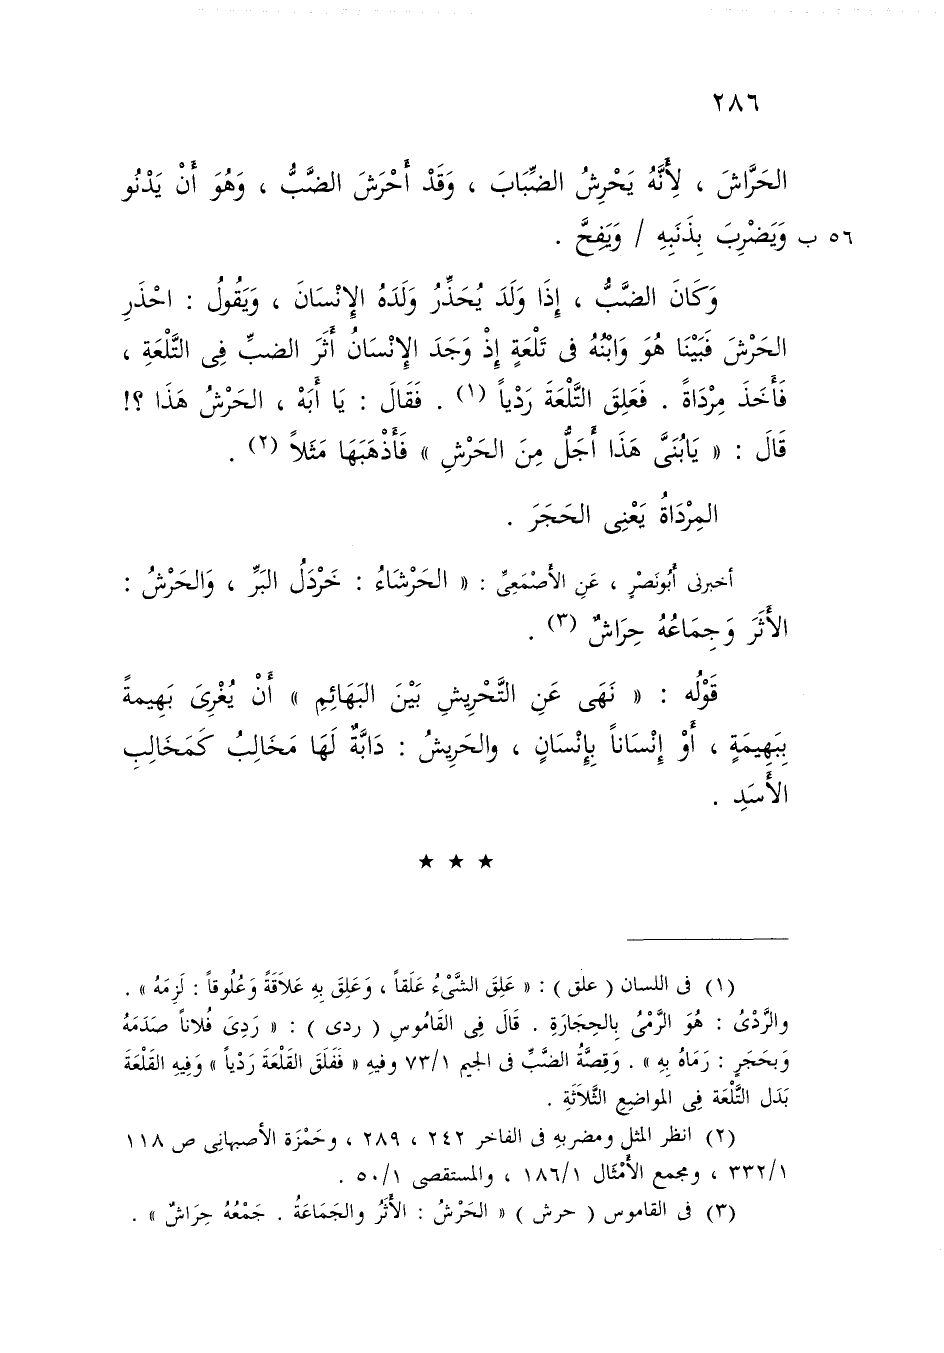 ٢٨٦
الحَرَّاشَ ، لِأَنَّهُ يَحْرِشُ الضِّبَابَ ، وَقَدْ أَحْرَشَ الضَّبُّ ، وَهُوَ أَنْ يَدْنُو
٥٦ ب وَيَضْرِبَ بِذَنَبِهِ / وَيَفِحَّ .
وَكَانَ الضَّبُّ ، إِذَا وَلَدَ يُحَذِّرُ وَلَدَهُ الإِنْسَانَ ، وَيَقُولُ : احْذَرِ
الحَرْشَ فَبَيْنَا هُوَ وَابْنُهُ فى تَلْعَةٍ إِذْ وَجَدَ الإِنْسَانُ أَثَرَ الضبِّ فِى التَّلْعَةِ ،
فَأَخَذَ مِرْدَاةً . فَعَلِقَ التَّلْعَةَ رَدْياً (١) . فَقَالَ : يَا أَبَهْ ، الحَرْشُ هَذَا ؟!
قَالَ : « يَابُنَىَّ هَذَا أَجَلُّ مِنَ الحَرْشِ » فَأَذْهَبَهَا مَثَلاً (٢) .
المِرْدَاةُ يَعْنِى الحَجَرَ .
أخبرنى أَبُونَصْرٍ ، عَنِ الأَصْمَعِىِّ : « الحَرْشَاءُ : خَرْدَلُ البَرِّ ، وَالحَرْشُ :
الأَثَرَ وَجِمَاعُهُ حِرَاشٌ (٣) .
قَوْلُه : « نَهَى عَنِ التَّحْرِيشِ بَيْنَ البَهَائِمِ » أَنْ يُغْرِىَ بَهِيمةً
بِبَهِيمَةٍ ، أَوْ إِنْسَاناً بِإِنْسَانٍ ، والحَرِيشُ : دَابَّةٌ لَهَا مَخَالِبُ كَمَخَالِبِ
الأَسَدِ .
★ ★ ★
(١) فى اللسان ( علق ) : « عَلِقَ الشَّىْءُ عَلَقاً ، وَعَلِقَ بِهِ عَلاَقَةً وَعُلُوقاً : لَزِمَهُ » .
والرَّدْىُ : هُوَ الرَّمْىُ بِالحِجَارَةِ . قَالَ فِى القَامُوسِ ( ردى ) : « رَدِىَ فُلاناً صَدَمَهُ
وَبحَجَرٍ : رَمَاهُ بِهِ » . وَقِصَّةُ الضَّبِّ فى الجيم ٧٣/١ وفيه « فَفَلَقَ القَلْعَةَ رَدْياً » وَفِيهِ القَلْعَة
بَدَل التَّلْعَة فِى المواضِعِ الثَّلاَثَةِ .
(٢) انظر المثل ومضربه فى الفاخر ٢٤٢ ، ٢٨٩ ، وحَمْزَة الأصبهانِى ص ١١٨
٣٣٢/١ ، ومجمع الأَمْثَال ١٨٦/١ ، والمستقصى ٥٠/١ .
(٣) فى القاموس ( حرش ) « الحَرْشُ : الأَثَرُ والجَمَاعَةُ . جَمْعُهُ حِرَاشٌ » .